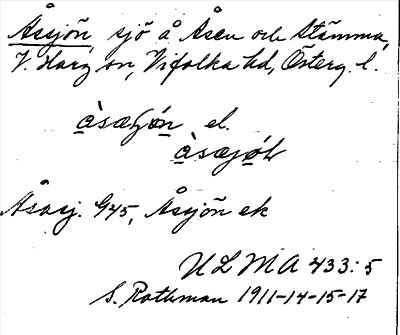 Åssjön, sjö å Åsen och Stämma,
V. Harg sn, Vifolka hd, Österg. l.
el.
Åsasj. G45, Åssjön ek
ULMA 433:5
S. Rothman 1911-14-15-17